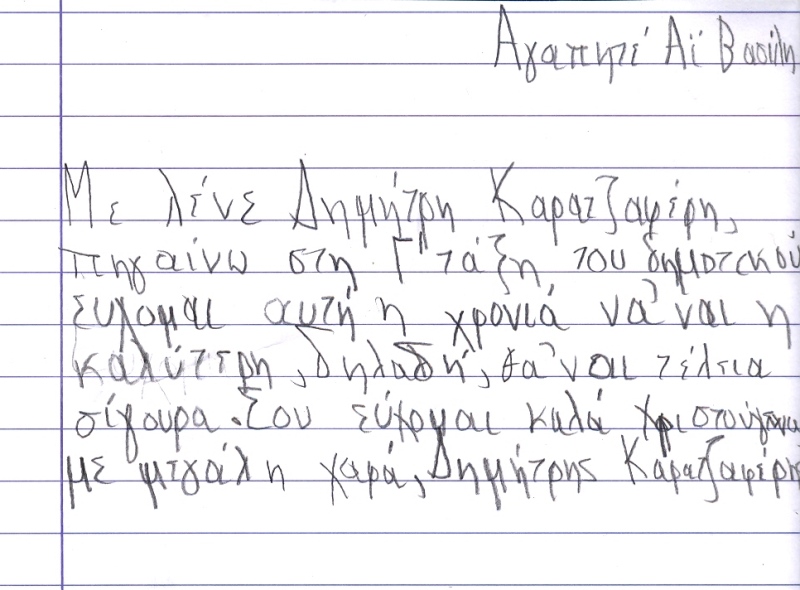 Αγαπητέ Αϊ Βασίλη
Με λένε Δημήτρη Καρατζαφέρη,
πηγαίνω στη Γ' τάξη, του δημοτικού
εύχομαι αυτή η χρονιά να 'ναι η
καλύτερη, δηλαδή, θα 'ναι τέλεια
σίγουρα. Σου εύχομαι καλά Χριστούγεννα
με μεγάλη χαρά, Δημήτρης Καρατζαφέρης